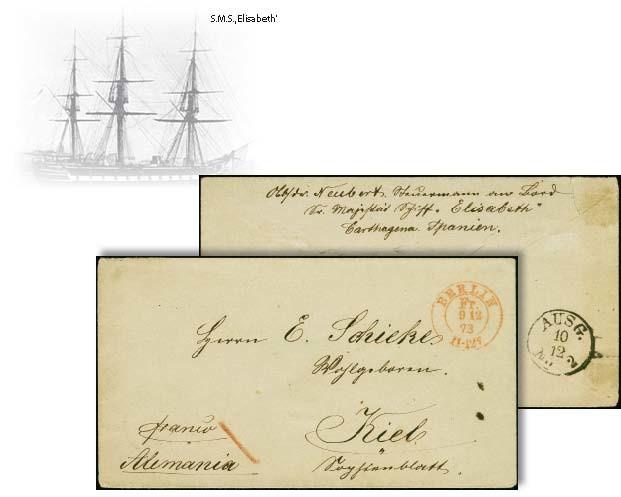 S.M.S.‚Elisabeth'
Neubert. Steuermann an Bord
Sr. Majestät Schiff „Elisabeth"
Carthagena. Spanien.
BERLIN
Fr.
9 12
73
11-12V.
AUSG.
10
12
No. 2
Herrn E. Schieke,
Wohlgeboren.
franco
Kiel,
Alemania
Sophienblatt.